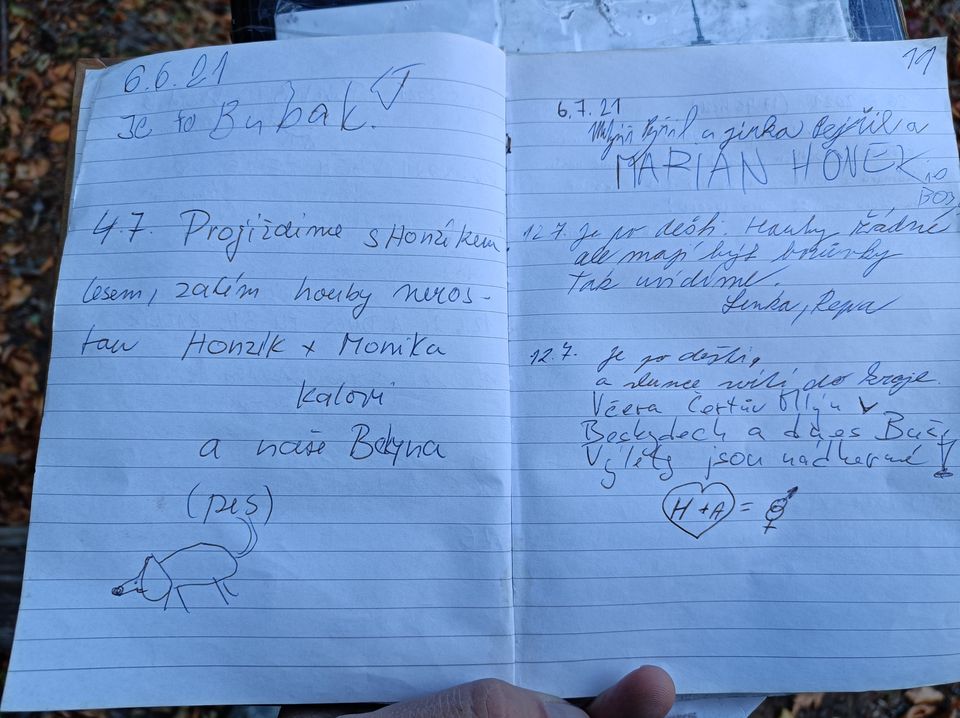 6.6.21
Je to Bubák.
4.7. Projíždíme s Honzíkem
lesem, zatím houby neros-
tou Honzík + Monika
Kalovi
a naše Bety­na
(pes)
11
6.7.21
a Jinka Pejřil a
MARIAN HONEK
12.7. Je po dešti. Houby žádné
ale mají být borůvky
tak uvidíme.
Lenka, Repa
12.7. Je po dešti,
a slunce svítí do kraje.
Včera Čertův Mlýn v
Beskydech a dnes
Výlety jsou nádherné!
H + A =